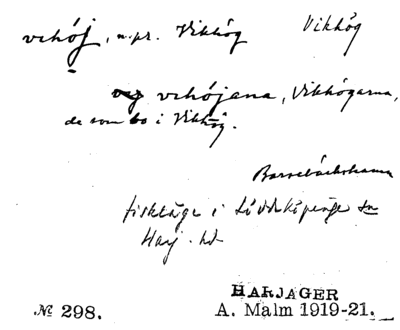 vehój, n.pr. Vikhög Vikhög
og vehójana, Vikhögarna,
de som bo i Vikhög.
Barsebäckshamn
fiskläge i Löddeköpinge sn
Harj. hd
HARJAGER
№ 298. A. Malm 1919-21.